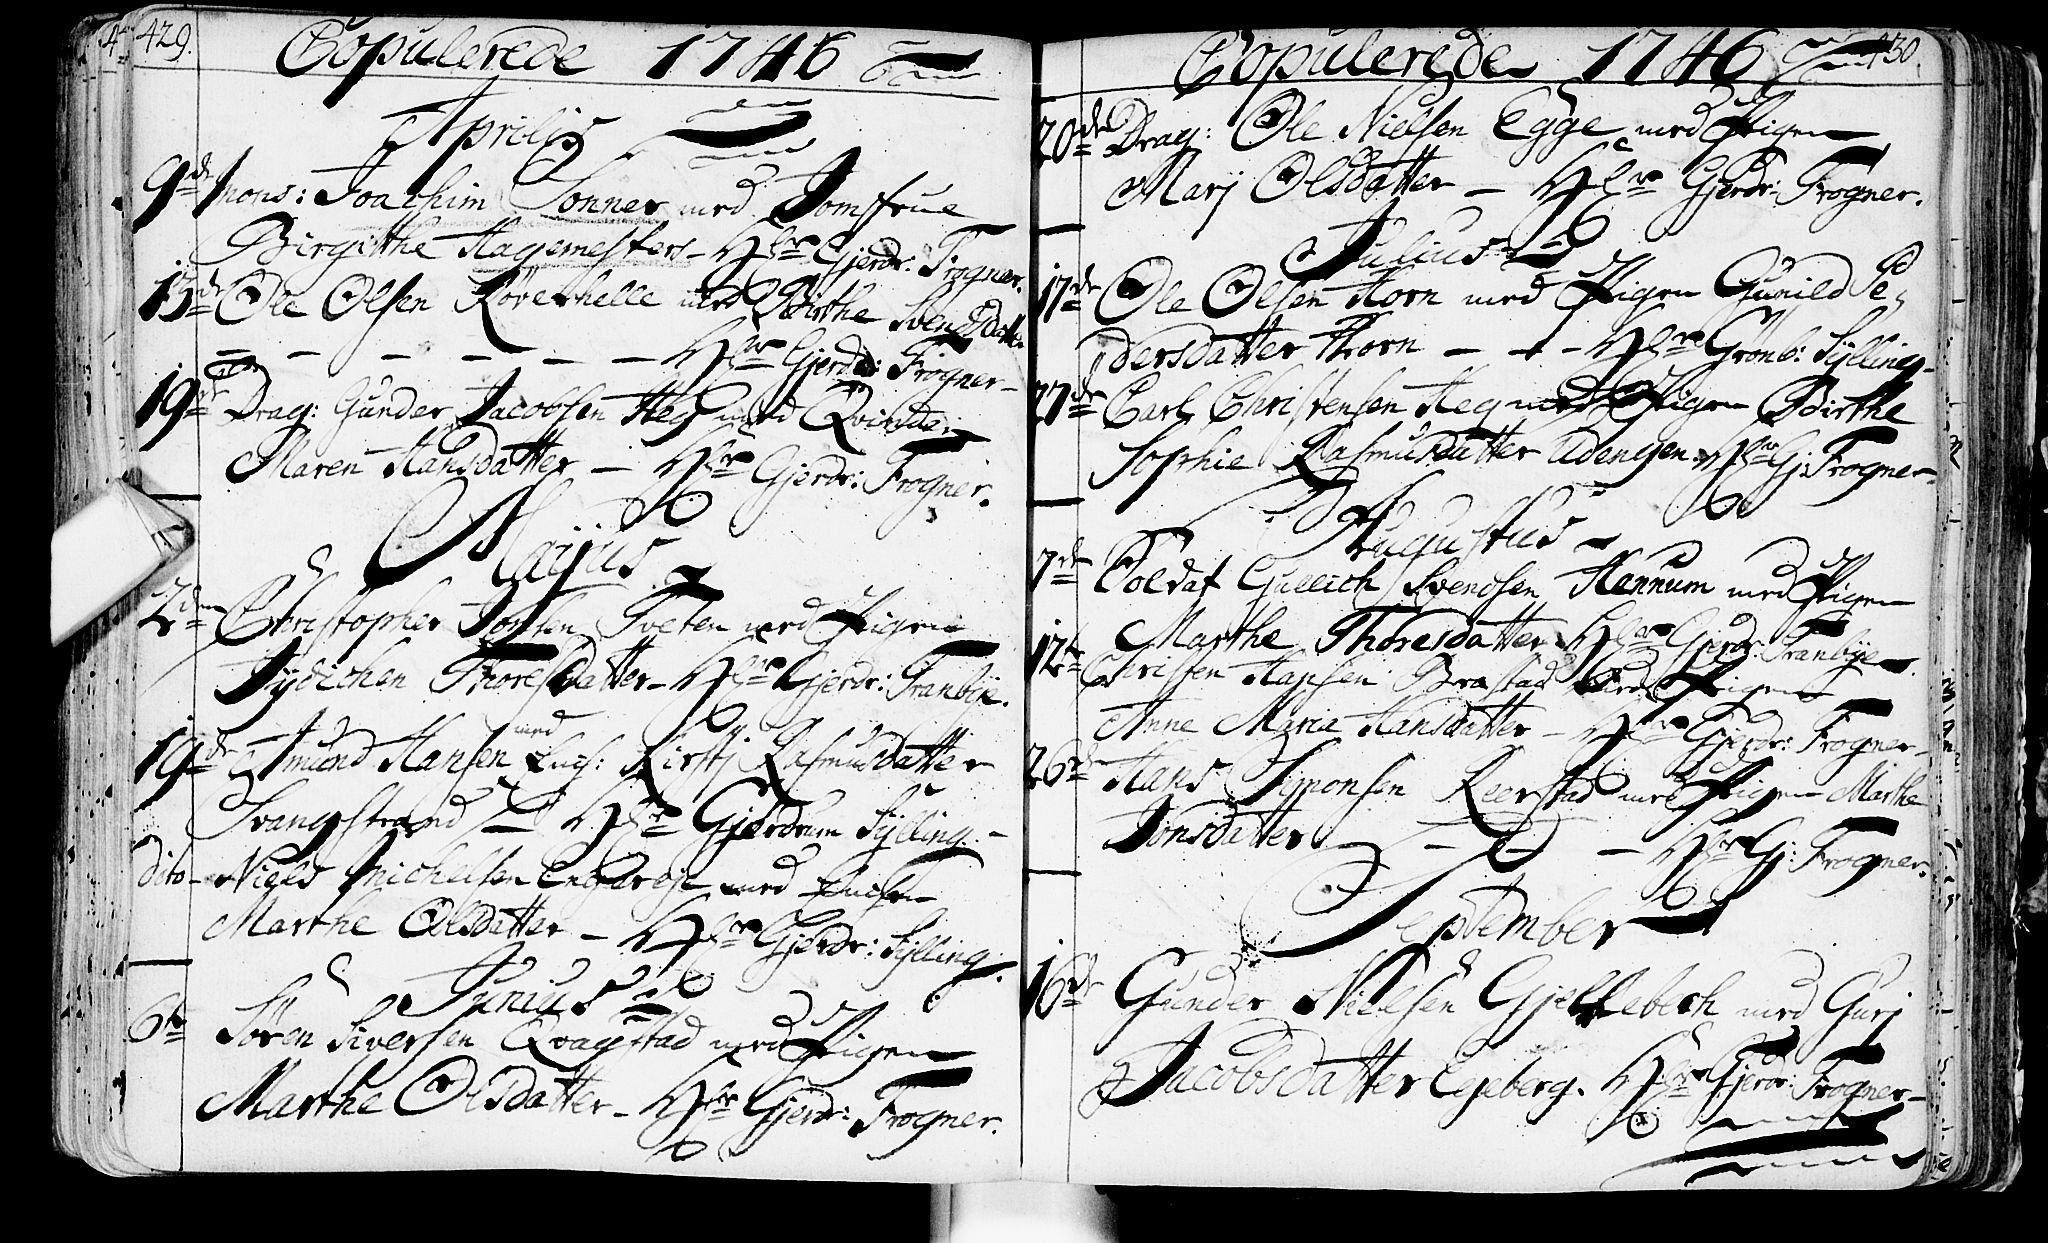 429.
Copulerede 1746
Aprilis
9de Mons: Joachim Sonner med Jomfrue
Birgithe Hagemesters - Hr Gjerdr: Frogner.
15de Ole Olsen med Birthe Svendsdatter
- - - - - - - Hr Gjerdr: Frogner -
19de Drag: Gunder Jacobsen Heg med Qvinden
Maren Hansdatter - Hr Gjerdr: Frogner.
Majus
2den Christopher Joensen Tveten med Pigen
Sydichen Thoresdatter - Hr Gjerdr: Tranbye.
19de Amund Hansen med Enck: Kirstj Rasmusdatter
Svangstrand - Hr Gjerdrum Sylling. -
dito - Niels Michelsen med Encken
Marthe Olsdatter - Hr Gjerdr: Sylling.
Junius
6te Sören Siversen Qvagstad med Pigen
Marthe Olsdatter - Hr Gjerdr: Frogner.
430.
Copulerede 1746
20de Drag: Ole Nielsen Egge med Pigen
Marj Olsdatter - Hr Gjerdr: Frogner.
Julius
17de Ole Olsen Horn med Pigen Gunild Pe,
dersdatter Horn - - - Hr Grönb: Sylling -
27de Carl Christensen Heg med Pigen Birthe
Sophie Rasmusdatter Udengen. Hr Gj: Frogner -
Augustus -
7de Soldat Gullich Svendsen Hennum med Pigen
Marthe Thoresdatter Hr Gjerdr: Tranbye
12te Christen Hansen Brastad med Pigen
Anne Maria Hansdatter - Hr Gjerdr: Frogner -
26de Hans Symonsen Reerstad med Pigen Marthe
Jonsdatter - - - Hr Gj: Frogner.
September
16de Gunder Nielsen Gjellebech med Gurj
Jacobsdatter Egeberg. Hr Gjerdr: Frogner -